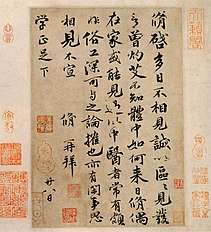 脩啓多日不相見誠以區區見發
言曾灼艾不知體中如何來日脩偶
在家或能見過此中醫者常有頗
非俗工深可與之論榷也亦有閑事思
相見不宣 脩 再拜
學正足下 廿八日